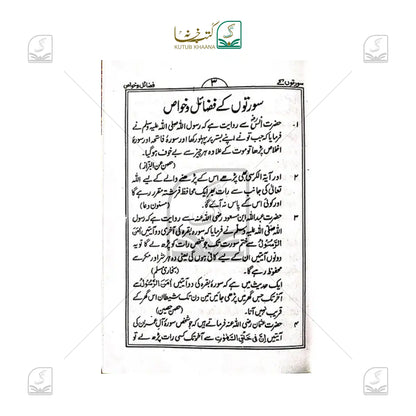 کتب خانہ
KUTUB KHAANA
سورتوں کے
۳
فضائل و خواص
سورتوں کے فضائل و خواص
۱۔ حضرت انسؓ سے روایت ہے کہ رسول اللہ صلی اللہ علیہ وسلم نے
فرمایا کہ جب تو نے اپنے بستر پر پہلو رکھا اور سورۂ فاتحہ اور سورۂ
اخلاص پڑھا تو موت کے علاوہ ہر چیز سے بے خوف ہو گیا۔
(حصن عن البزاز)
۲۔ اور آیۃ الکرسی بھی پڑھے اس کے پڑھنے والے کے لیے اللہ
تعالٰی کی جانب سے رات بھر ایک محافظ فرشتہ مقرر رہے گا
اور کوئی اس کے پاس نہ آئے گا۔ (مسنون دعا)
۳۔ حضرت عبداللہ ابن مسعود رضی اللہ عنہ سے روایت ہے کہ رسول
اللہ صلی اللہ علیہ وسلم نے فرمایا کہ سورۂ بقرہ کی آخری دو آیتیں اٰمَنَ
الرَّسُوْلُ سے ختم سورت تک جو شخص رات کو پڑھ لے گا تو یہ
دونوں آیتیں ان کے لیے کافی ہوں گی یعنی وہ ہر شر اور مکر سے
محفوظ رہے گا۔ (بخاری مسلم)
ایک حدیث میں ہے کہ سورۂ بقرہ کی دو آیتیں اٰمَنَ الرَّسُوْلُ سے
آخر تک جس گھر میں پڑھی جائیں تین دن تک شیطان اس گھر کے
قریب نہیں آتا۔ (حصن حصین)
۴۔ حضرت عثمان رضی اللہ عنہ فرماتے ہیں کہ جو شخص سورۂ آل عمران کی
آیتیں اِنَّ فِیْ خَلْقِ السَّمٰوٰتِ سے آخر تک کسی رات پڑھ لے تو